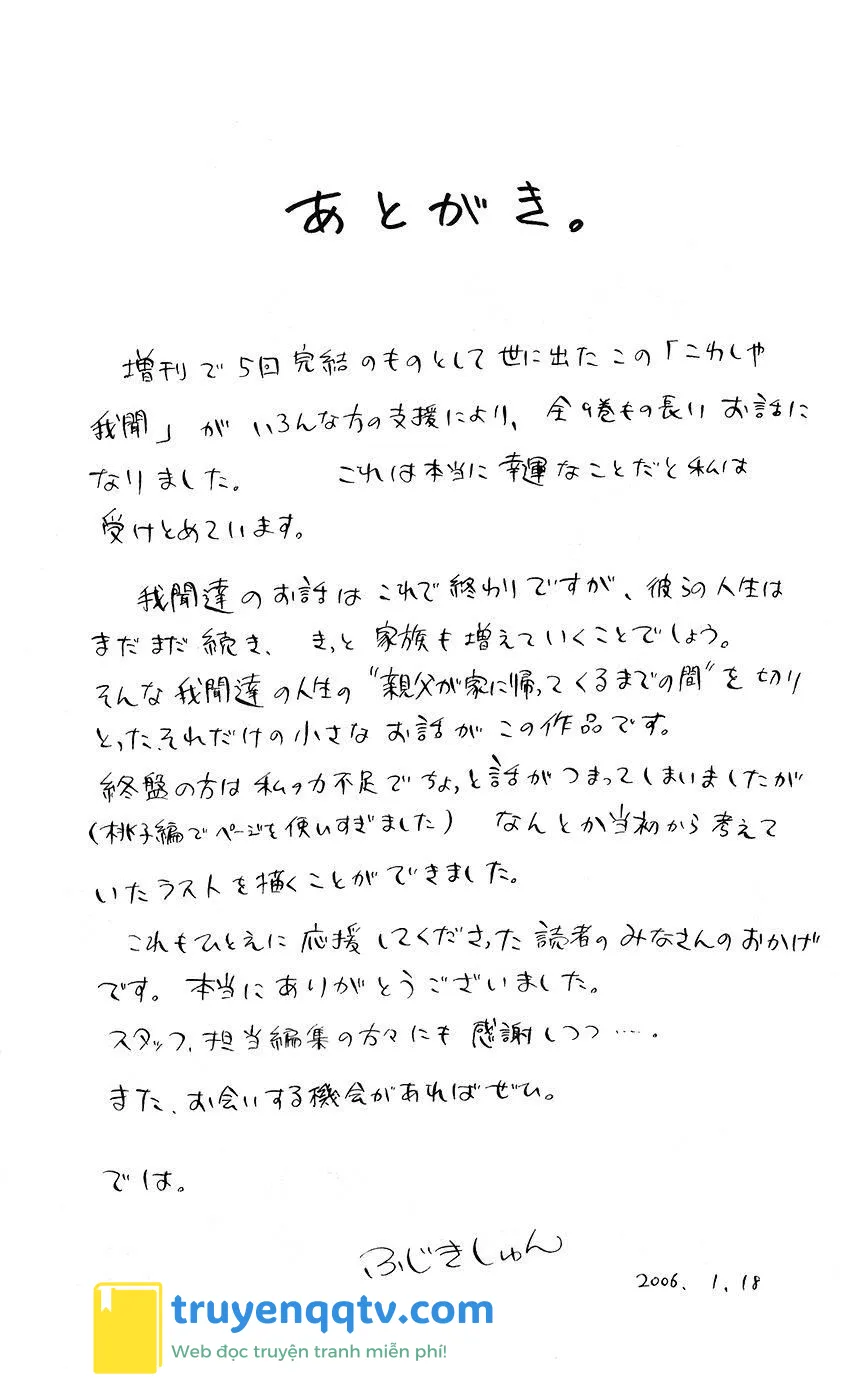 あとがき。
増刊で5回完結のものとして世に出たこの「こわしや
我聞」がいろんな方の支援により、全9巻もの長いお話に
なりました。 これは本当に幸運なことだと私は
受けとめています。
我聞達のお話はこれで終わりですが、彼らの人生は
まだまだ続き、きっと家族も増えていくことでしょう。
そんな我聞達の人生の"親父が家に帰ってくるまでの間"を切り
とった、それだけの小さなお話がこの作品です。
終盤の方は私の力不足でちょっと話がつまってしまいましたが
(桃子編でページを使いすぎました) なんとか当初から考えて
いたラストを描くことができました。
これもひとえに応援してくださった読者のみなさんのおかげ
です。本当にありがとうございました。
スタッフ、担当編集の方々にも感謝しつつ…。
また、お会いする機会があればぜひ。
では。
ふじきしゅん
2006. 1. 18
truyenqqtv.com
Web đọc truyện tranh miễn phí!